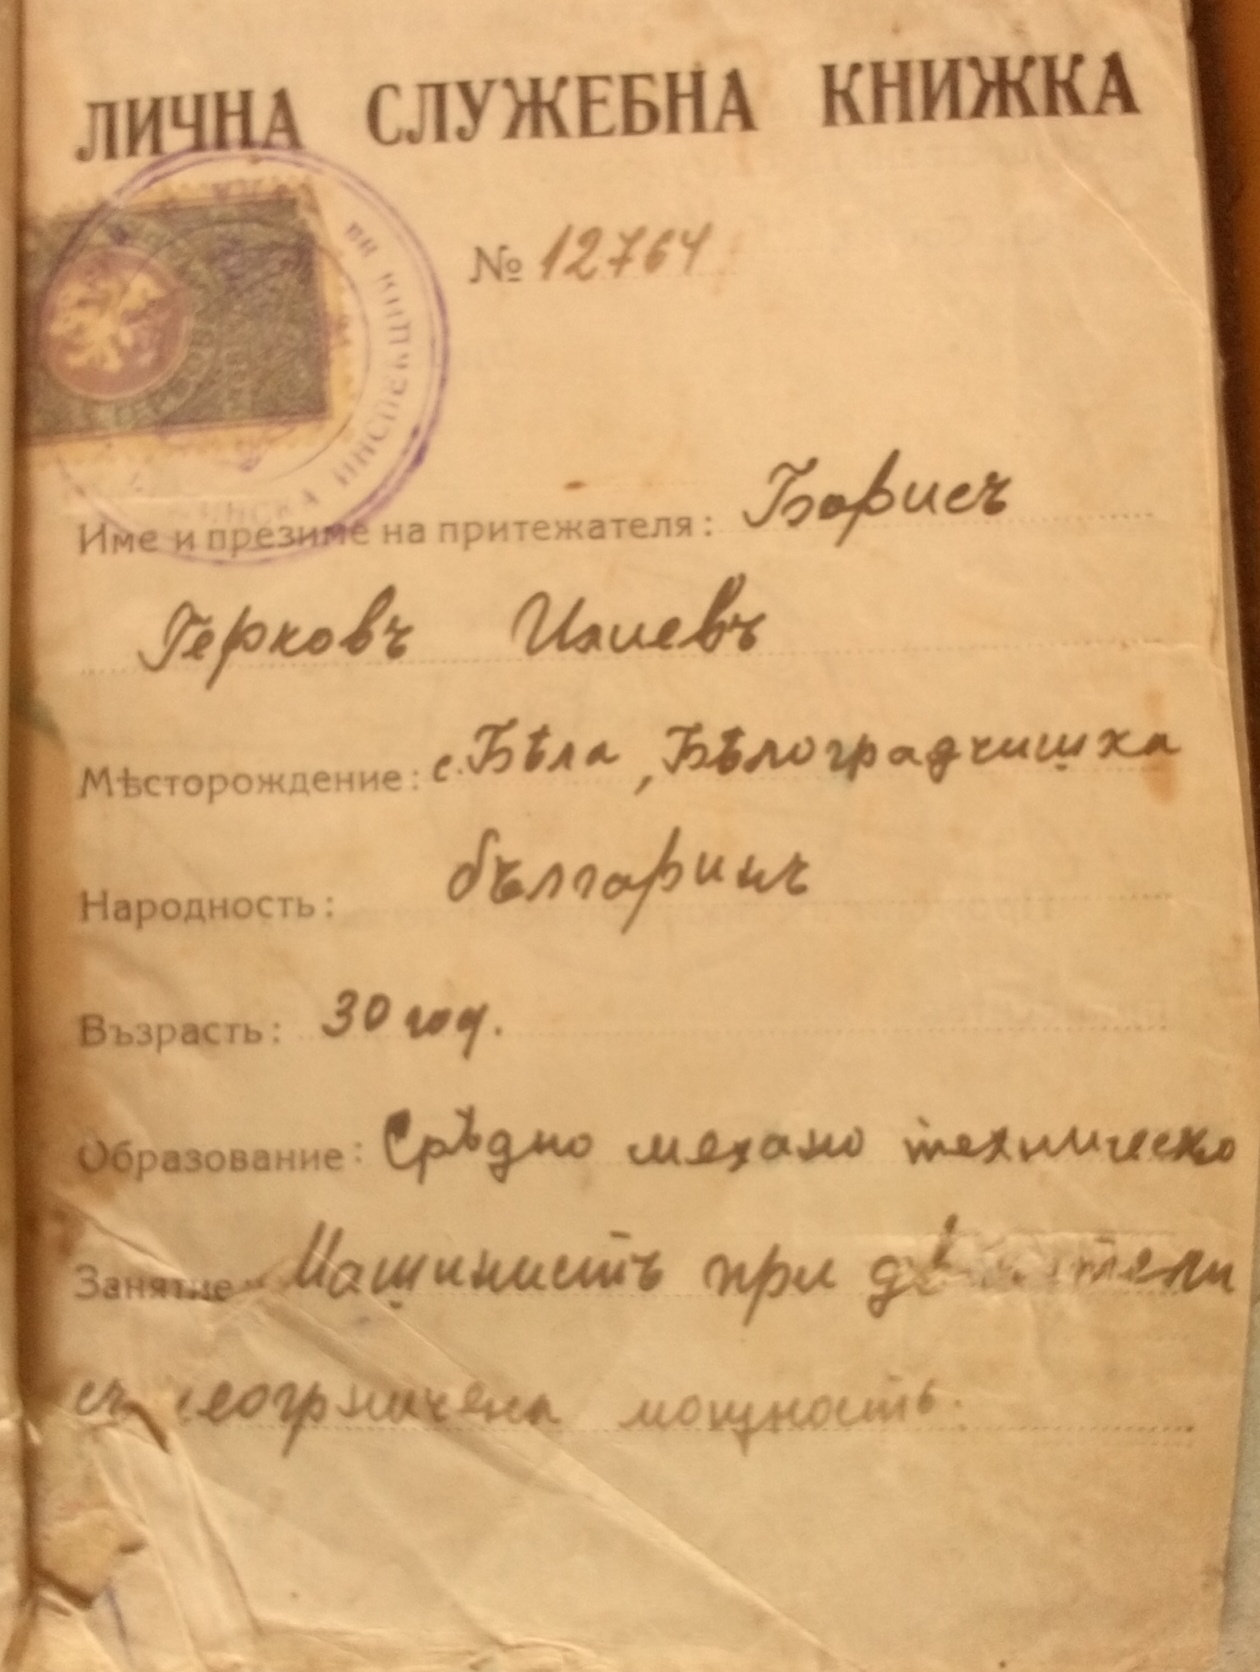 ЛИЧНА СЛУЖЕБНА КНИЖКА
№ 12764
Име и презиме на притежателя: Борисъ
Герковъ Илиевъ
Мѣсторождение: с. Бѣла, Бѣлоградчишка
Народность: българинъ
Възрасть: 30 год.
Образование: Срѣдно механо техническо
Занятие Машинистъ при двигатели
съ неограничена мощность.
ИНСПЕКЦИЯ